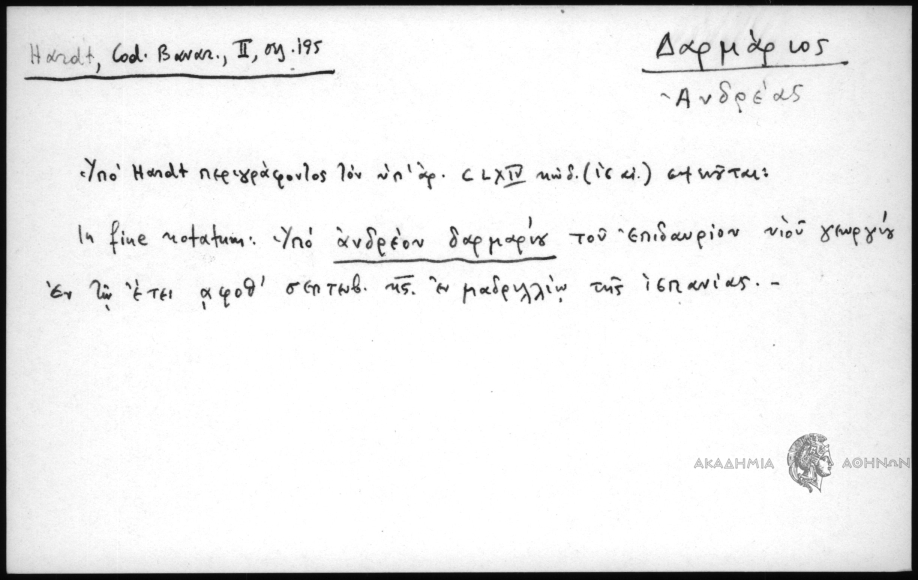 Hardt, Cod. Bavar., II, σχ. 195
Δαρμάριος
Ἀνδρέας
Ὑπό Hardt περιγράφοντος τόν ὑπ' ἀρ. CLXIV κώδ. (ις αἰ.) σημειοῦται:
In fine notatum: Ὑπό ἀνδρέου δαρμαρίου τοῦ Ἐπιδαυρίου υἱοῦ γεωργίου
ἐν τῷ ἔτει ᾳφοθ' σεπτεμβ. κης. ἐν μαδριλλίῳ τῆς ἱσπανίας. -
ΑΚΑΔΗΜΙΑ ΑΘΗΝΩΝ